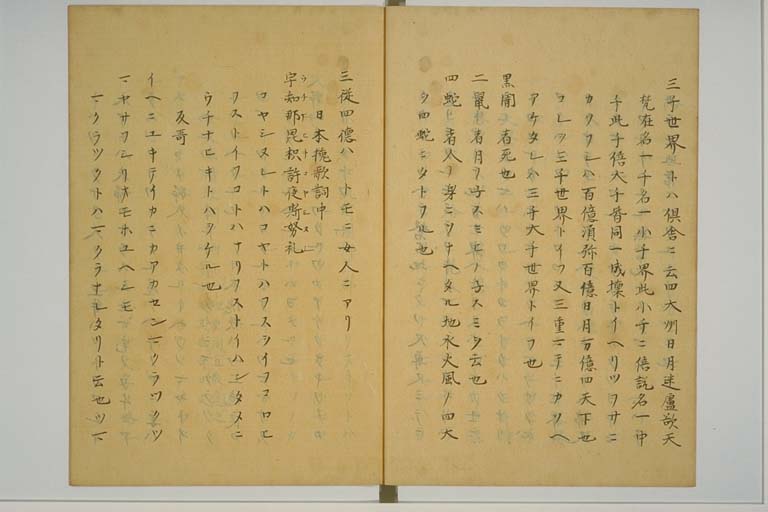 三千世界トハ倶舎ニ云四大州日月迷盧欲天
梵在名一千名一小千界此小千ニ倍説名一中
千此千倍大千皆同一成壊トイヘリツフサニ
カソフレハ百億須弥百億日月百億四天下也
コレヲ三千世界トイフ又三重ニ千ニカソヘ
アケタレハ三千大千世界トイフ也
黒闇者死也
二鼠者月ヲ子スミ日ノ子スミト云也
四蛇者人ノ身ニソナヘタル地水火風ヲ四大
ヲ四蛇ニタトフル也
三従四徳ハトモニ女人ニアリ
日本挽歌詞中
宇知那毘枳許夜斯努礼
コヤシヌレトハコヤトハフストイフコヽロ
フストイフコトハナリフストイハンタメニ
ウチナヒキトハツケル也
反哥
イヘニユキテイカニカアカセンマクラツクツ
マヤサフシクオモホユヘシモ
マクラツクトハマクラナレタリト云也ツマ